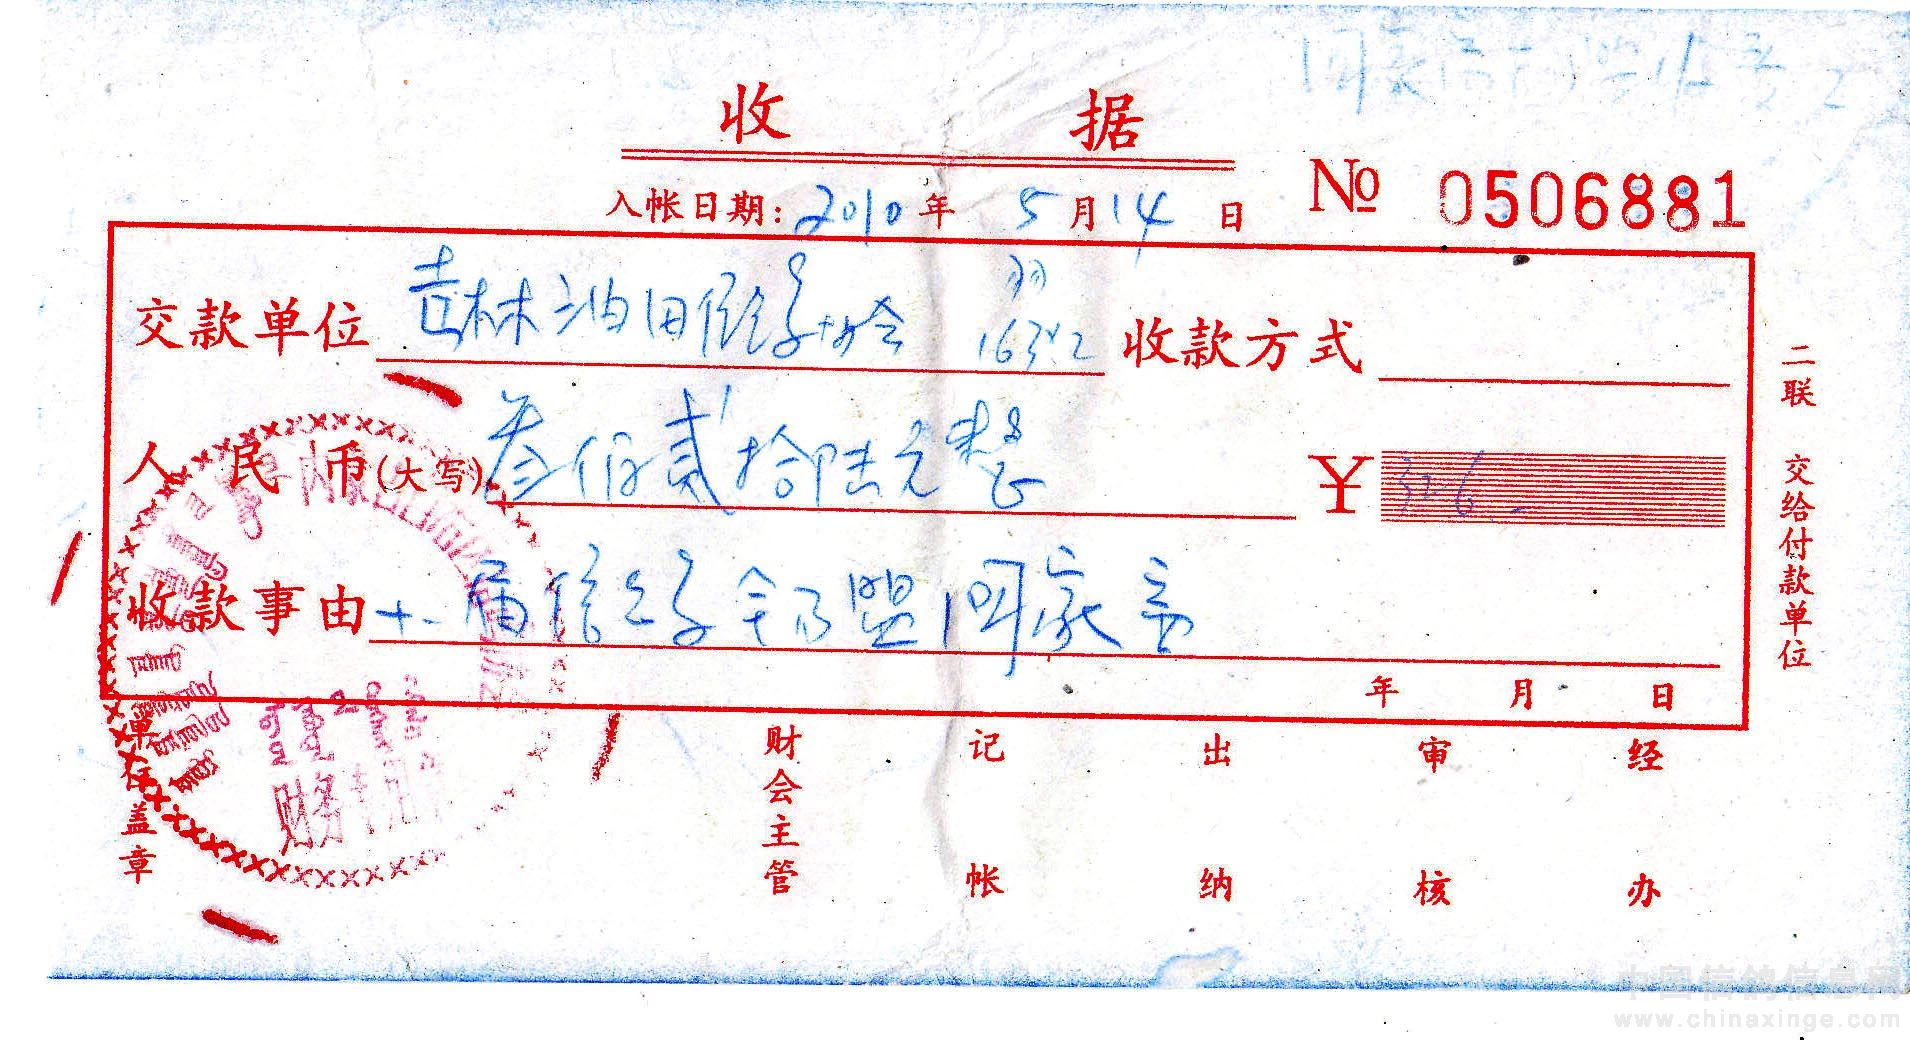 收 据
№ 0506881
入帐日期: 2010 年 5 月 14 日
交款单位 吉林油田信鸽协会 羽 163×2 收款方式
人民币(大写) 叁佰贰拾陆元整 ¥ 326.-
收款事由 十一届信鸽 盟 国家赛
年 月 日
二联 交给付款单位
单位盖章 财会主管 记帐 出纳 审核 经办
财务专用
中国信鸽信息网
www.chinaxinge.com